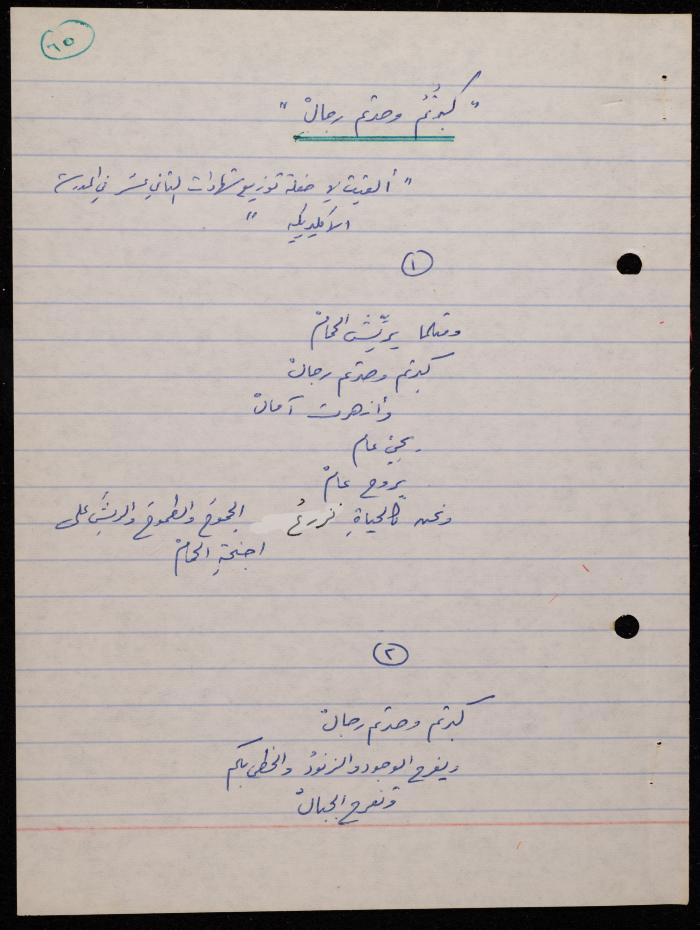 ٦٥
" كبُرْتُم وصرتم رجالْ "
" ألقيت في حفلة توزيع شهادات الثاني عشر في المدرسة
الاكليريكيه "
١
ومثلما يريّش الحمامْ
كبرتم وصرتم رجالْ
وأزهرت آمالْ
يجيءُ عام
يروح عامْ
ونحن كالحياةِ نزرعُ الجموحَ والطموحَ والريشَ على
اجنحةِ الحمامْ
٢
كبرتم وصرتم رجالْ
ويفرح الوجود والزنودُ والخطى بكم
وتفرح الجبالْ